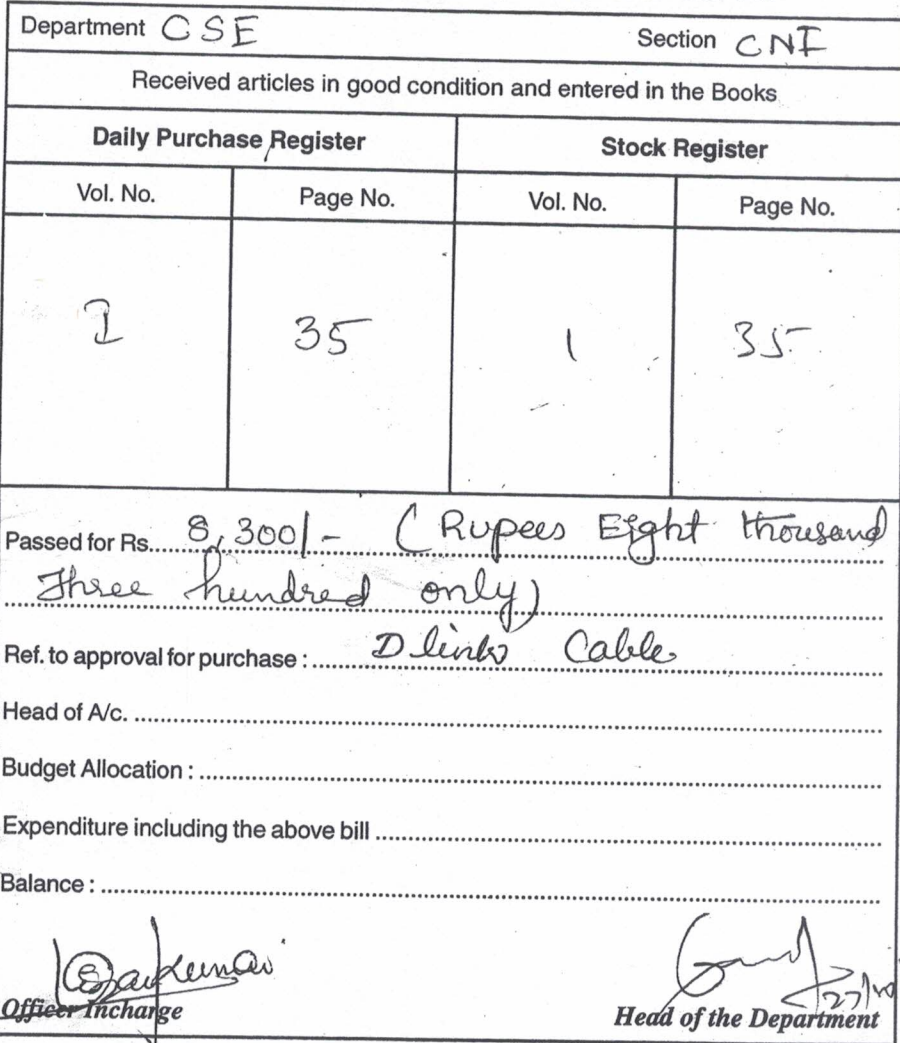 Department CSE Section CNF
Received articles in good condition and entered in the Books
Daily Purchase Register Stock Register
Vol. No. Page No. Vol. No. Page No.
1 35 1 35
Passed for Rs. 8,300/- (Rupees Eight thousand
Three hundred only)
Ref. to approval for purchase : D link Cable
Head of A/c.
Budget Allocation :
Expenditure including the above bill
Balance :
27/10
Officer Incharge Head of the Department